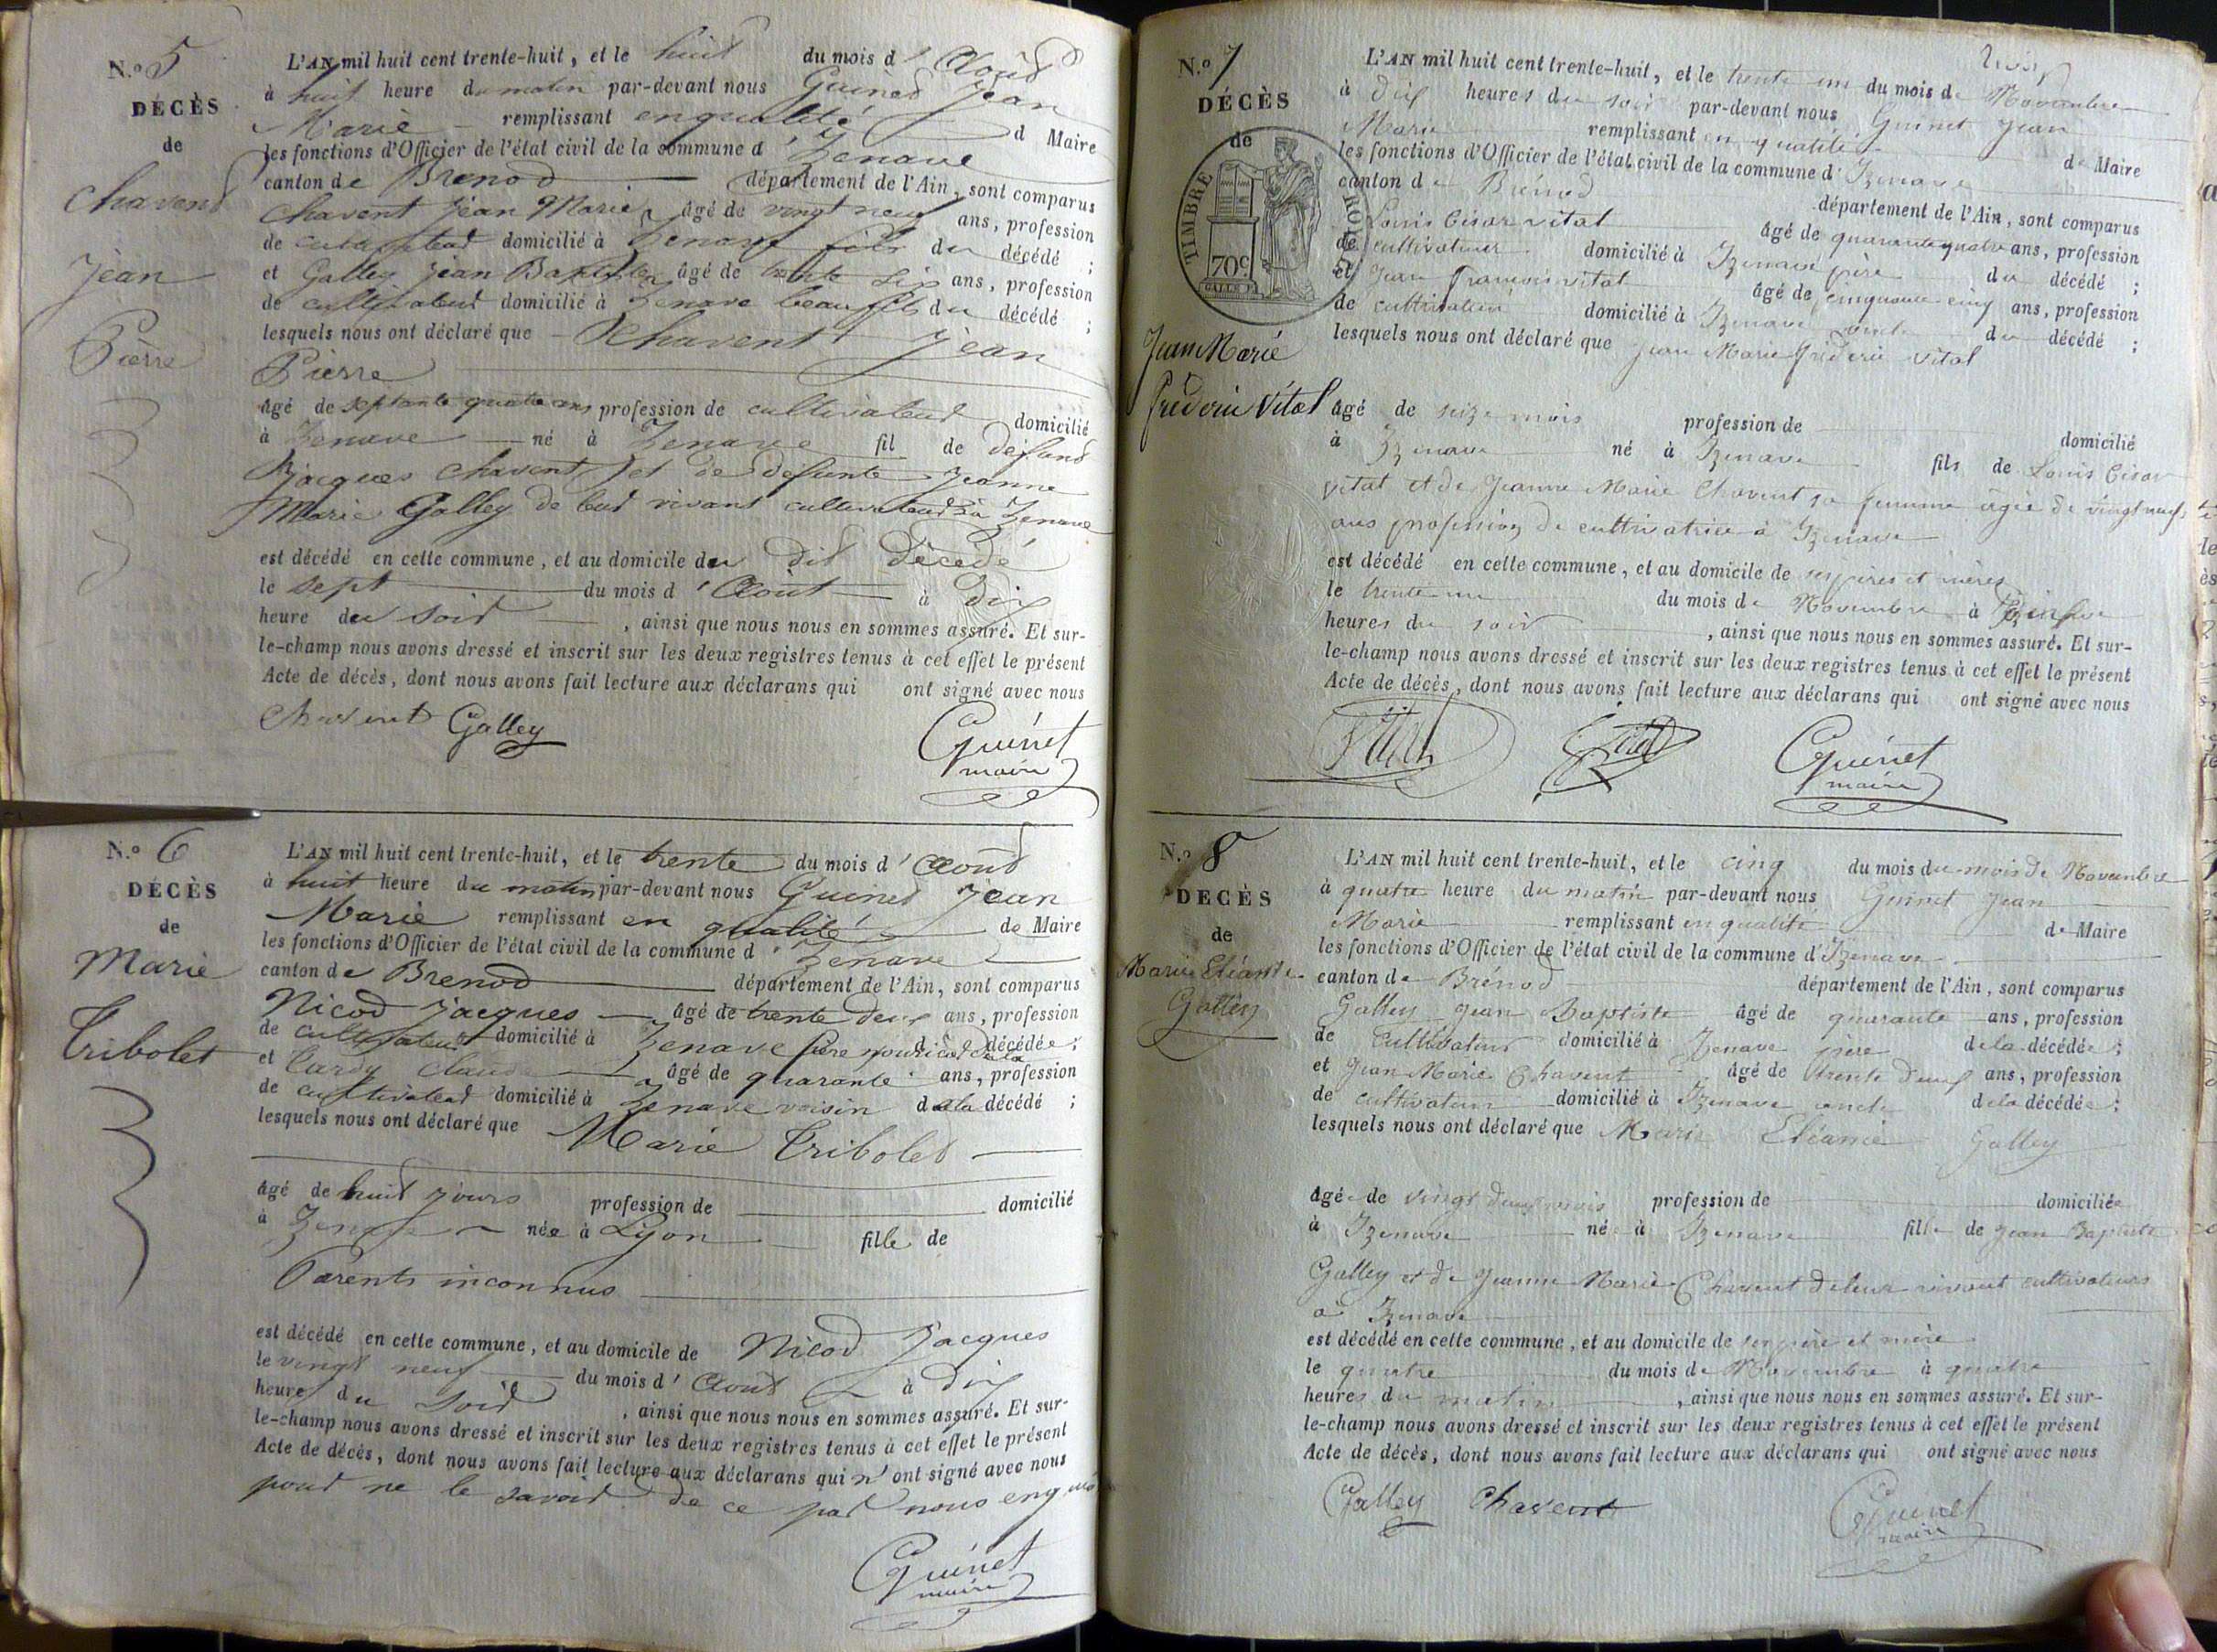 N.o 5
DÉCÈS
de
Chavent
Jean
Pierre
L'AN mil huit cent trente-huit, et le huit du mois d'Aout
à huit heure du matin par-devant nous Guinet Jean
Marie remplissant en qualité d Maire
les fonctions d'Officier de l'état civil de la commune d'Izenave
canton de Brenod département de l'Ain, sont comparus
Chavent Jean Marie âgé de vingt neuf ans, profession
de cultivateur domicilié à Izenave fils du décédé ;
et Galley Jean Baptiste âgé de trente six ans, profession
de cultivateur domicilié à Izenave beau fils du décédé ;
lesquels nous ont déclaré que Chavent Jean
Pierre
âgé de septante quatre ans profession de cultivateur domicilié
à Izenave né à Izenave fil de défunt
Jacques Chavent et de defunte Jeanne
Marie Galley de leur vivant cultivateurs à Izenave
est décédé en cette commune, et au domicile du dit décédé
le sept du mois d'Aout à dix
heure du soir , ainsi que nous nous en sommes assuré. Et sur-
le-champ nous avons dressé et inscrit sur les deux registres tenus à cet effet le présent
Acte de décès, dont nous avons fait lecture aux déclarans qui ont signé avec nous
Chavent Galley Guinet
maire
N.o 6
DÉCÈS
de
Marie
Tribolet
L'AN mil huit cent trente-huit, et le trente du mois d'Aout
à huit heure du matin par-devant nous Guinet Jean
Marie remplissant en qualité de Maire
les fonctions d'Officier de l'état civil de la commune d'Izenave
canton de Brenod département de l'Ain, sont comparus
Nicod Jacques âgé de trente deux ans, profession
de cultivateur domicilié à Izenave père nourricier de la décédée ;
et Claude âgé de quarante ans, profession
de cultivateur domicilié à Izenave voisin de la décédé ;
lesquels nous ont déclaré que Marie Tribolet
âgé de huit jours profession de domicilié
à Izenave née à Lyon fille de
Parents inconnus
est décédé en cette commune, et au domicile de Nicod Jacques
le vingt neuf du mois d'Aout à dix
heures du soir , ainsi que nous nous en sommes assuré. Et sur-
le-champ nous avons dressé et inscrit sur les deux registres tenus à cet effet le présent
Acte de décès, dont nous avons fait lecture aux déclarans qui n'ont signé avec nous
pour ne le savoir de ce par nous enquis
Guinet
maire
N.o 7
DÉCÈS
de
TIMBRE ROYAL
70c
Jean Marie
Fréderic Vital
L'AN mil huit cent trente-huit, et le trente un du mois de Novembre
à dix heures du soir par-devant nous Guinet Jean
Marie remplissant en qualité de Maire
les fonctions d'Officier de l'état civil de la commune d'Izenave
canton de Brénod département de l'Ain, sont comparus
Louis César Vital âgé de quarante quatre ans, profession
de cultivateur domicilié à Izenave père du décédé ;
et Jean François Vital âgé de cinquante cinq ans, profession
de cultivateur domicilié à Izenave oncle du décédé ;
lesquels nous ont déclaré que Jean Marie Fréderic Vital
âgé de seize mois profession de domicilié
à Izenave né à Izenave fils de Louis César
Vital et de Jeanne Marie Chavent sa femme agée de vingt neuf
ans profession de cultivatrice à Izenave
est décédé en cette commune, et au domicile de ses pères et mères
le trente un du mois de Novembre à
heures du soir , ainsi que nous nous en sommes assuré. Et sur-
le-champ nous avons dressé et inscrit sur les deux registres tenus à cet effet le présent
Acte de décès, dont nous avons fait lecture aux déclarans qui ont signé avec nous
Vital Vital Guinet
maire
N.o 8
DÉCÈS
de
Marie Eléanie
Galley
L'AN mil huit cent trente-huit, et le cinq du mois du mois de Novembre
à quatre heure du matin par-devant nous Guinet Jean
Marie remplissant en qualité de Maire
les fonctions d'Officier de l'état civil de la commune d'Izenave
canton de Brénod département de l'Ain, sont comparus
Galley Jean Baptiste âgé de quarante ans, profession
de cultivateur domicilié à Izenave père de la décédée ;
et Jean Marie Chavent âgé de trente deux ans, profession
de cultivateur domicilié à Izenave oncle de la décédée ;
lesquels nous ont déclaré que Marie Eléanie Galley
âgée de vingt deux mois profession de domiciliée
à Izenave né à Izenave fille de Jean Baptiste
Galley et de Jeanne Marie Chavent de leur vivant cultivateurs
à Izenave
est décédé en cette commune, et au domicile de ses père et mère
le quatre du mois de Novembre à quatre
heures du matin , ainsi que nous nous en sommes assuré. Et sur-
le-champ nous avons dressé et inscrit sur les deux registres tenus à cet effet le présent
Acte de décès, dont nous avons fait lecture aux déclarans qui ont signé avec nous
Galley Chavent Guinet
maire